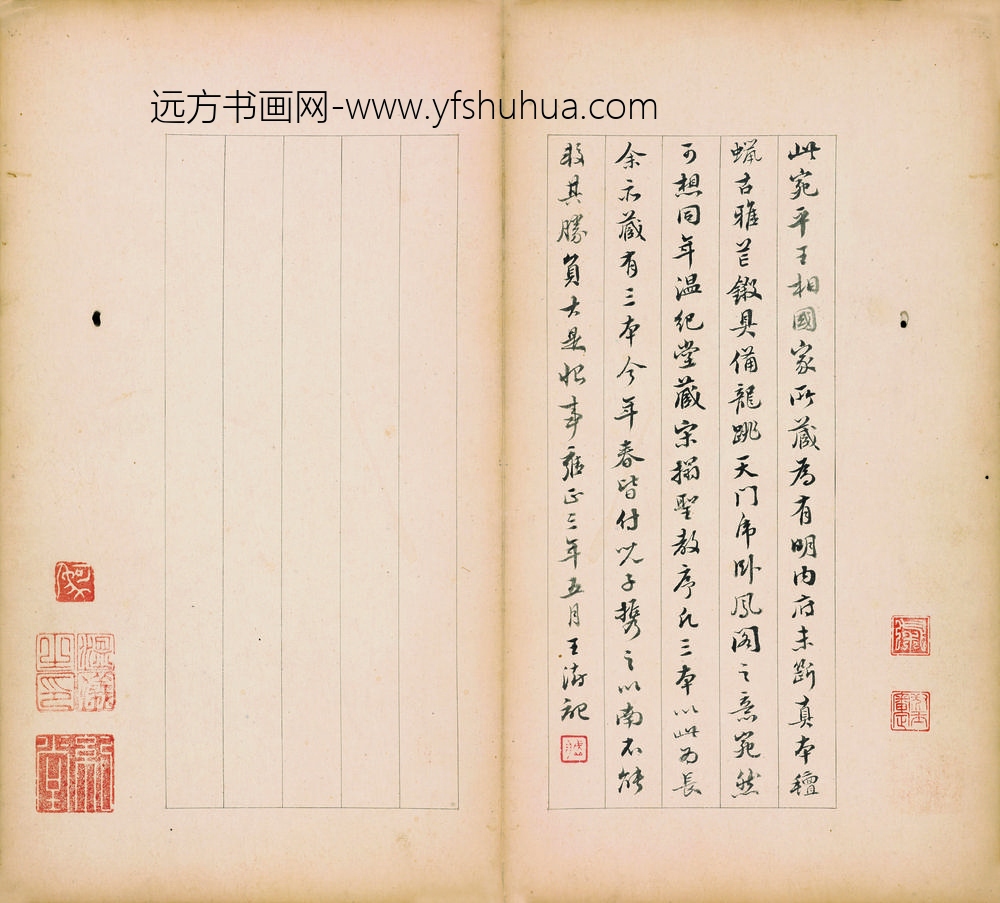 远方书画网-www.yfshuhua.com
此宛平王相國家所藏為有明内府未斷真本氊
蝋古雅芒鎩具備龍跳天门虎卧鳳阁之意宛然
可想同年温纪堂藏宋搨聖教序凡三本以此为長
余亦藏有三本今年春皆付兒子携之以南不能
較其勝負大是恨事雍正三年五月王澍記